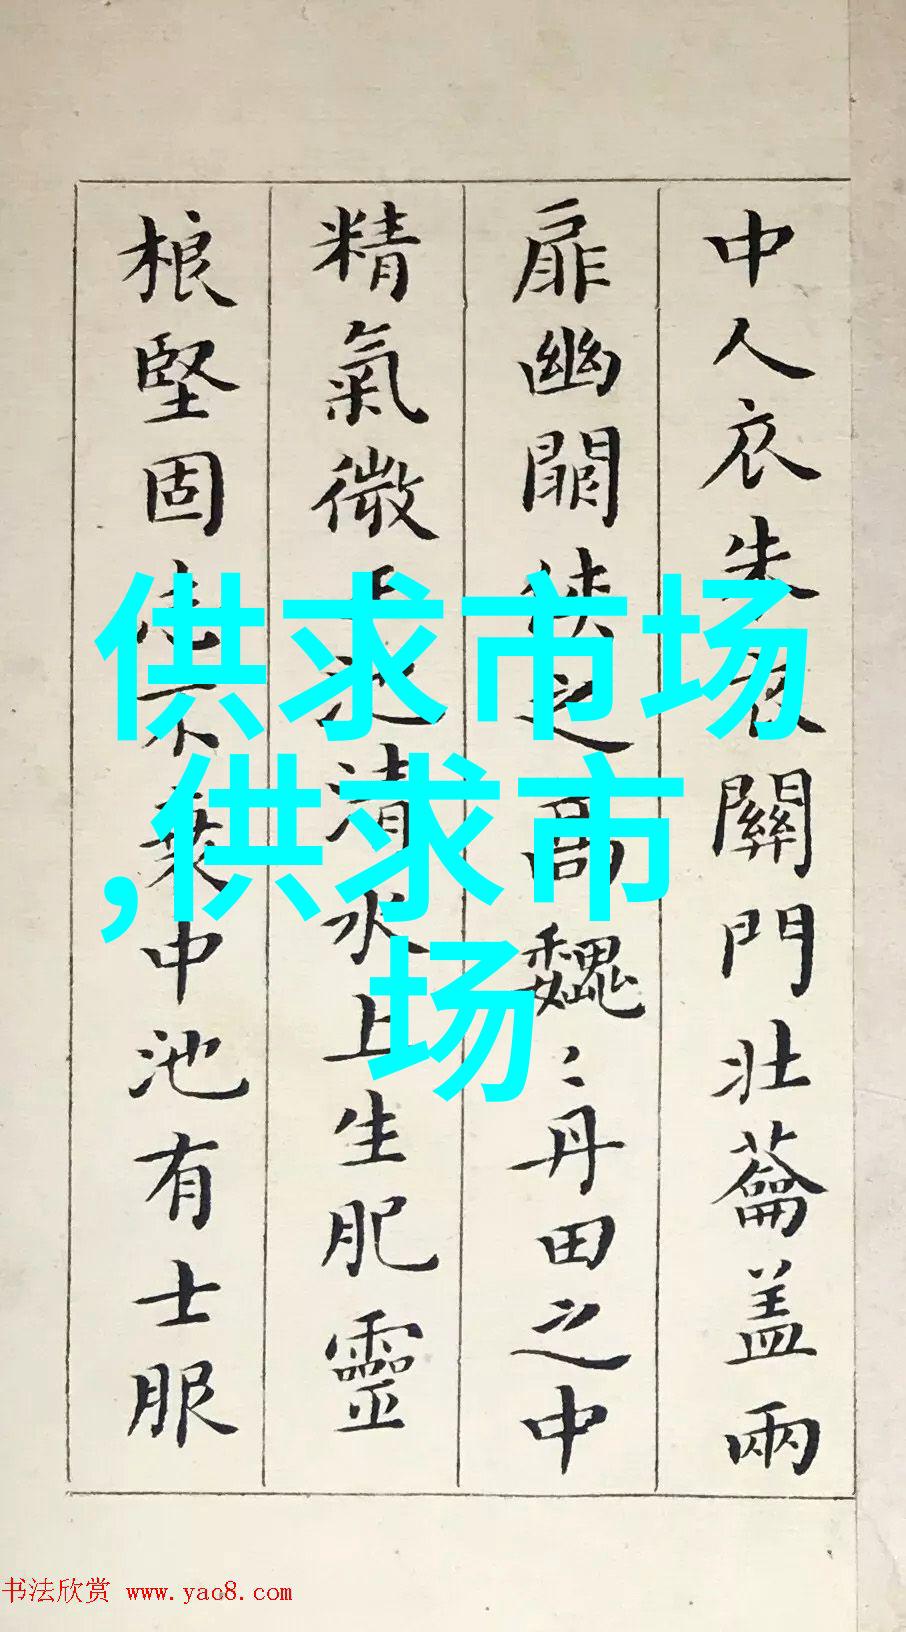 中人衣朱衣關門壯蘥盖兩
扉幽闕侠之高魏〻丹田之中
精氣微玉池清水上生肥靈
根堅固志不衰中池有士服
供求市场
,供求市
场
书法欣赏 www.yac8.com